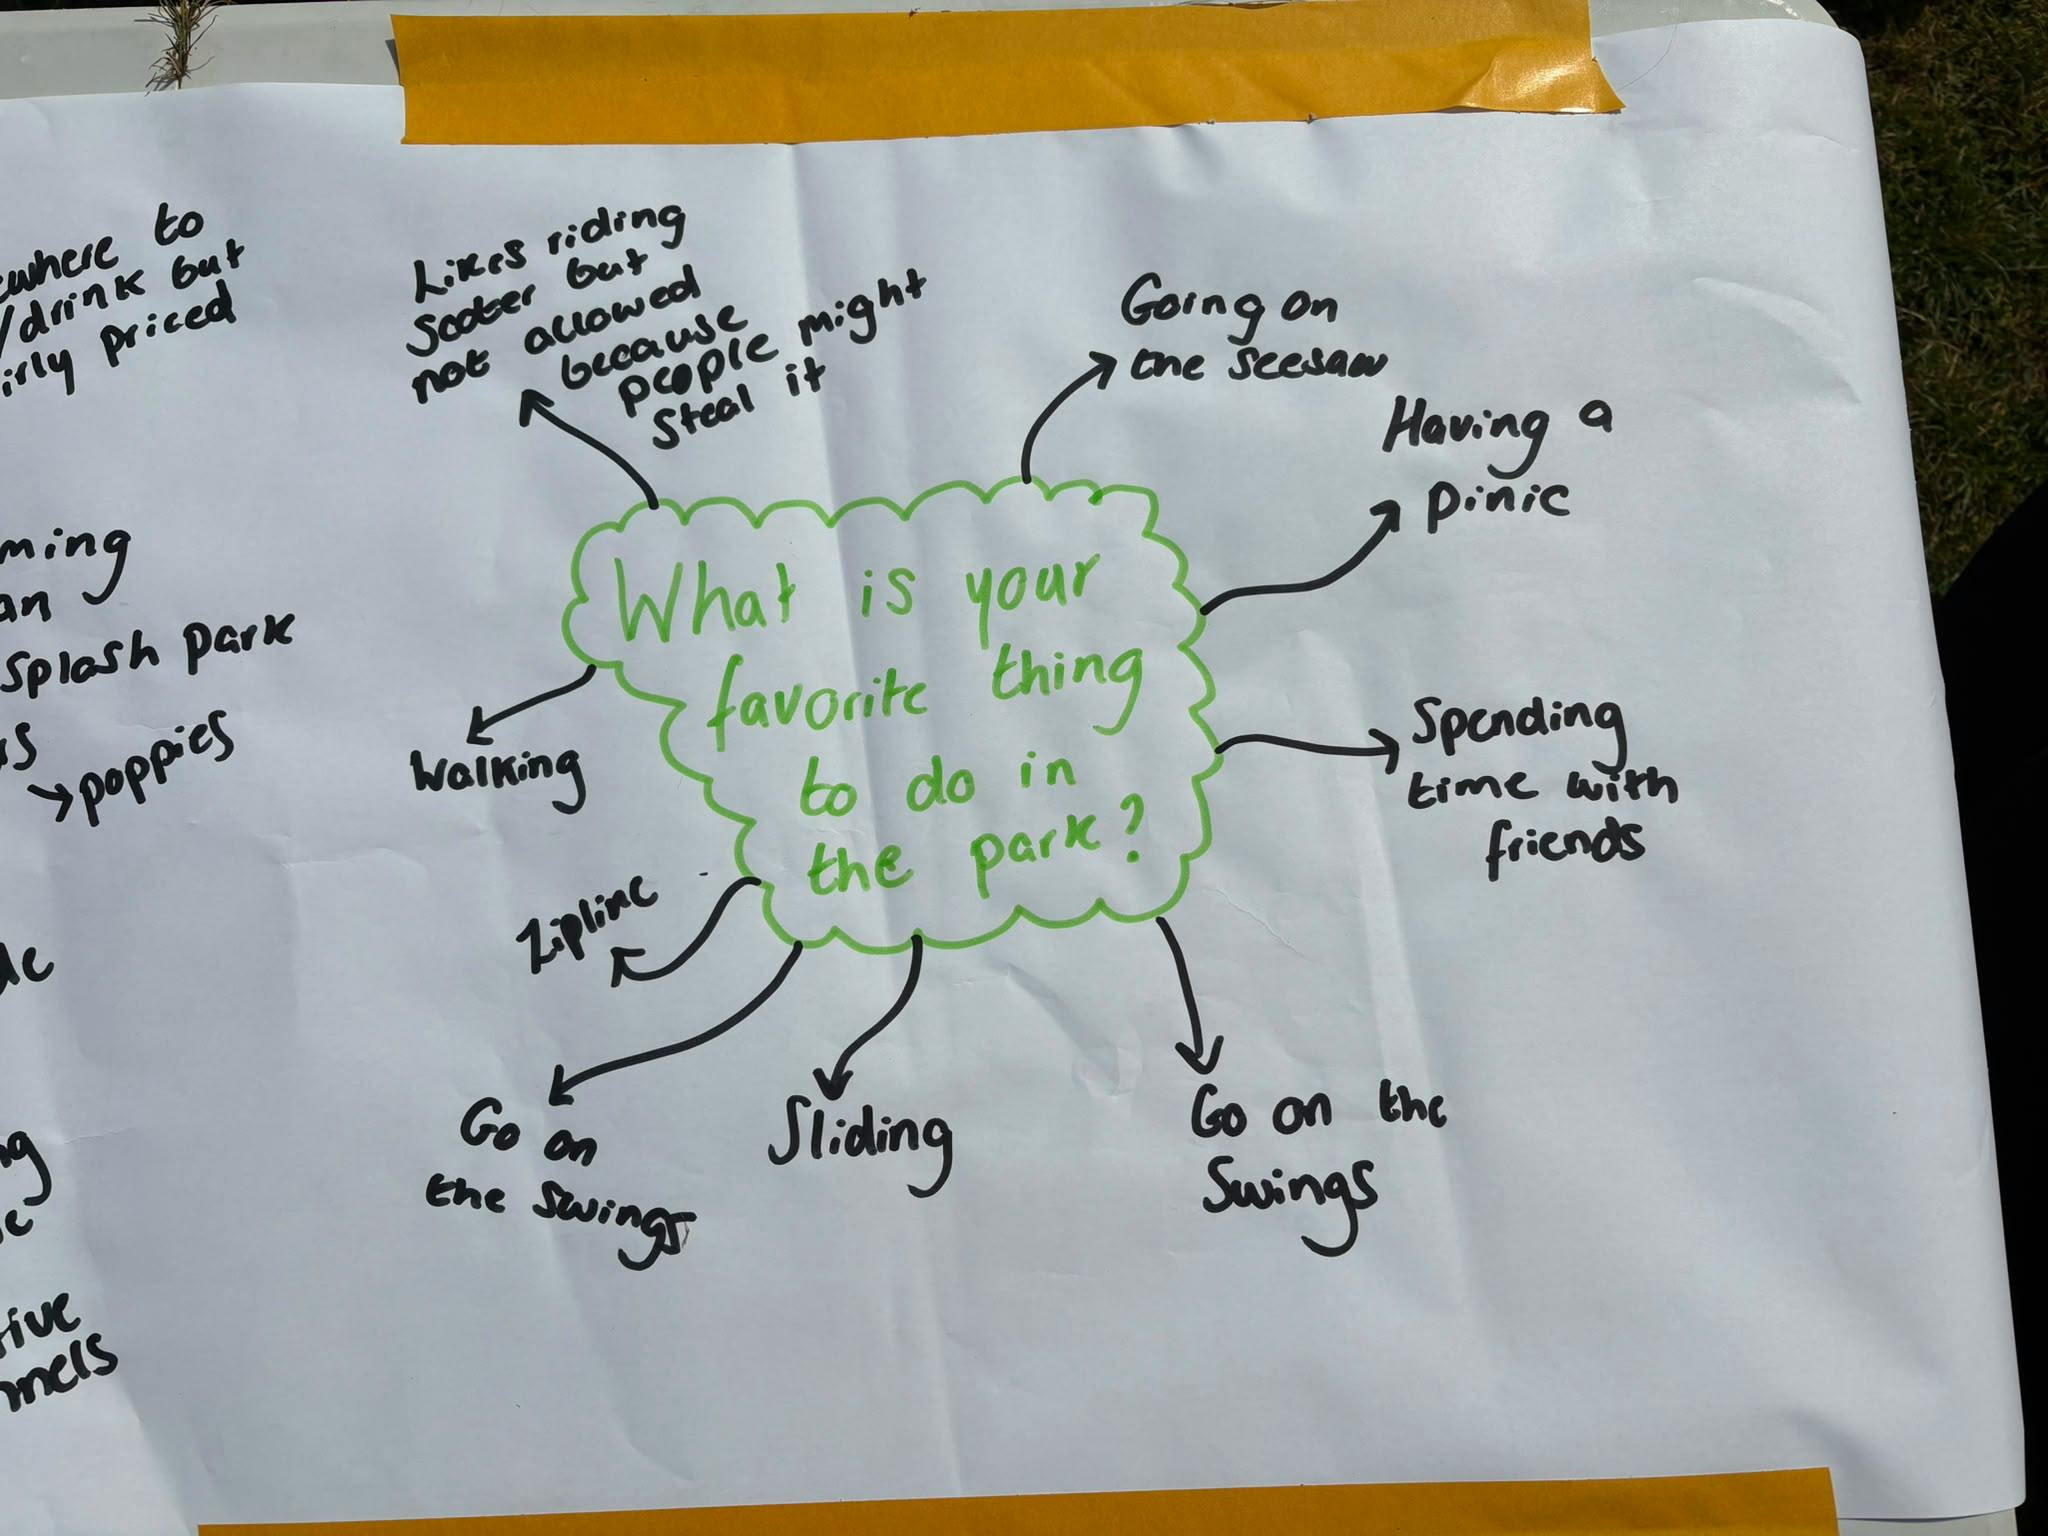 to
/drink but
priced
splash park
→poppies
Likes riding
Scoter but
not allowed
because
people might
Steal it
Going on
the seesaw
Having a
pinic
What is your
favorite thing
to do in
the park?
Walking
Spending
time with
friends
Zipline
Go on
the swings
Sliding
Go on the
Swings